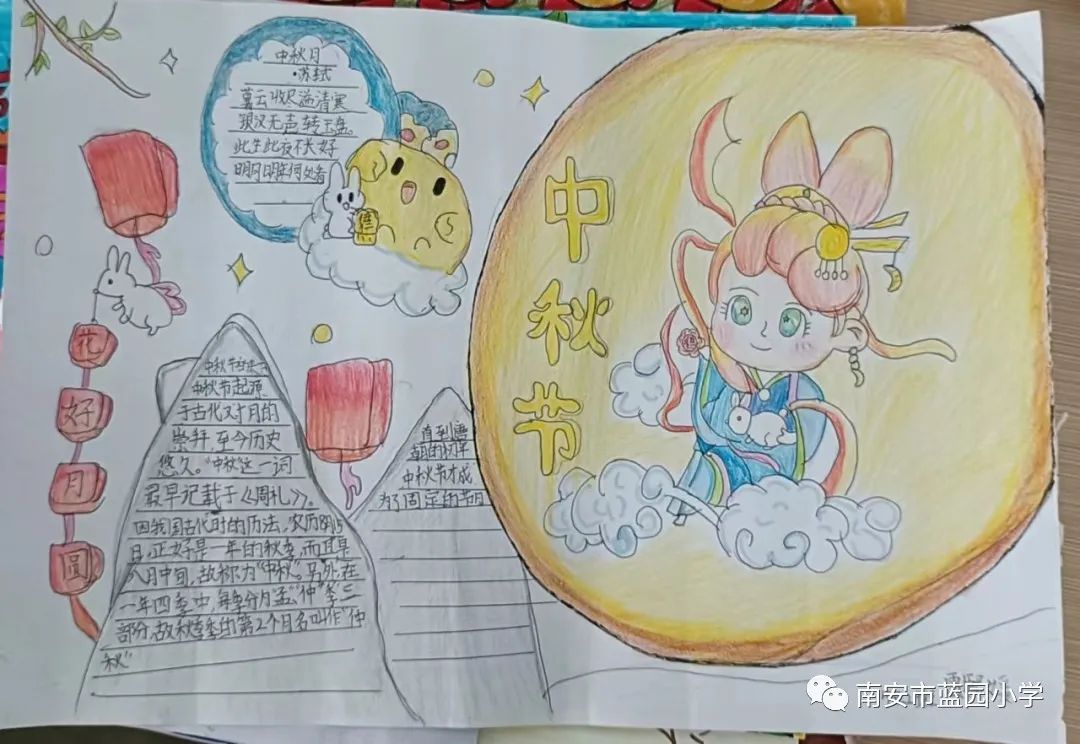 中秋月
·苏轼
暮云收尽溢清寒
银汉无声转玉盘。
此生此夜不长好
明月明年何处看
花
好
月
圆
中秋节
中秋节起源
于古代对月的
崇拜，至今历史
悠久。“中秋”这一词
最早记载于《周礼》。
因我国古代时的历法，农历8月15
日，正好是一年的秋季，而且是
八月中旬，故称为“中秋”。另外，在
一年四季中，每季分为“孟”“仲”“季”三
部分，故秋季的第2个月名叫作“仲
秋”
直到唐
朝的初年
中秋节才成
为固定的节日
中
秋
节
南安市蓝园小学